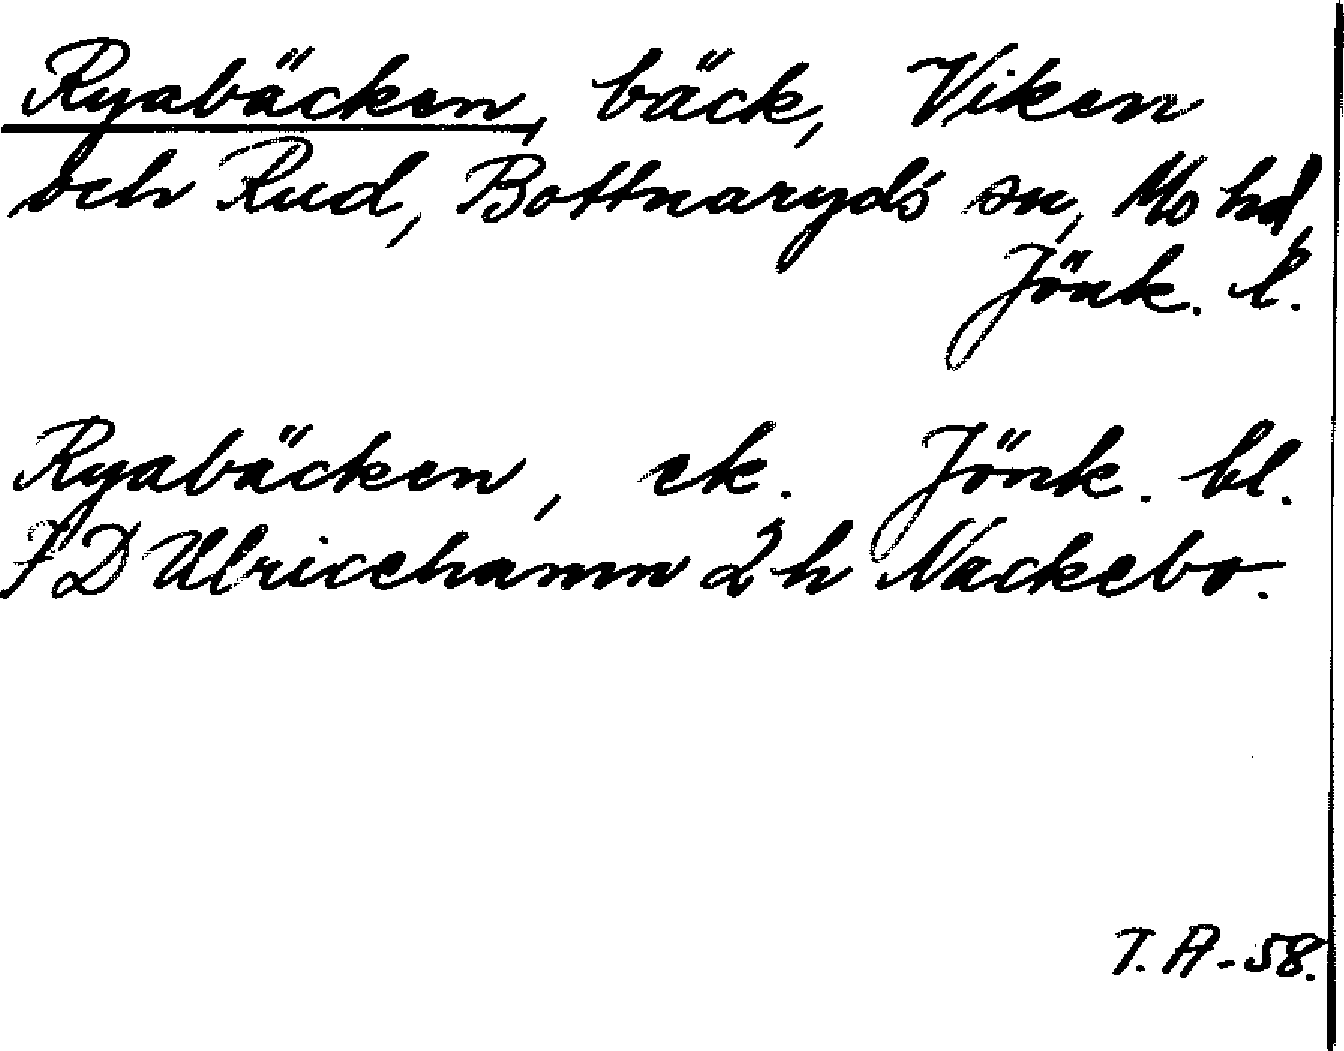 Ryabäcken, bäck, Viken
och Rud, Bottnaryds sn, Mo hd,
Jönk. l.
Ryabäcken, ek. Jönk. bl.
7 D Ulricehamn 2 h Nackebo.
T. A-58.